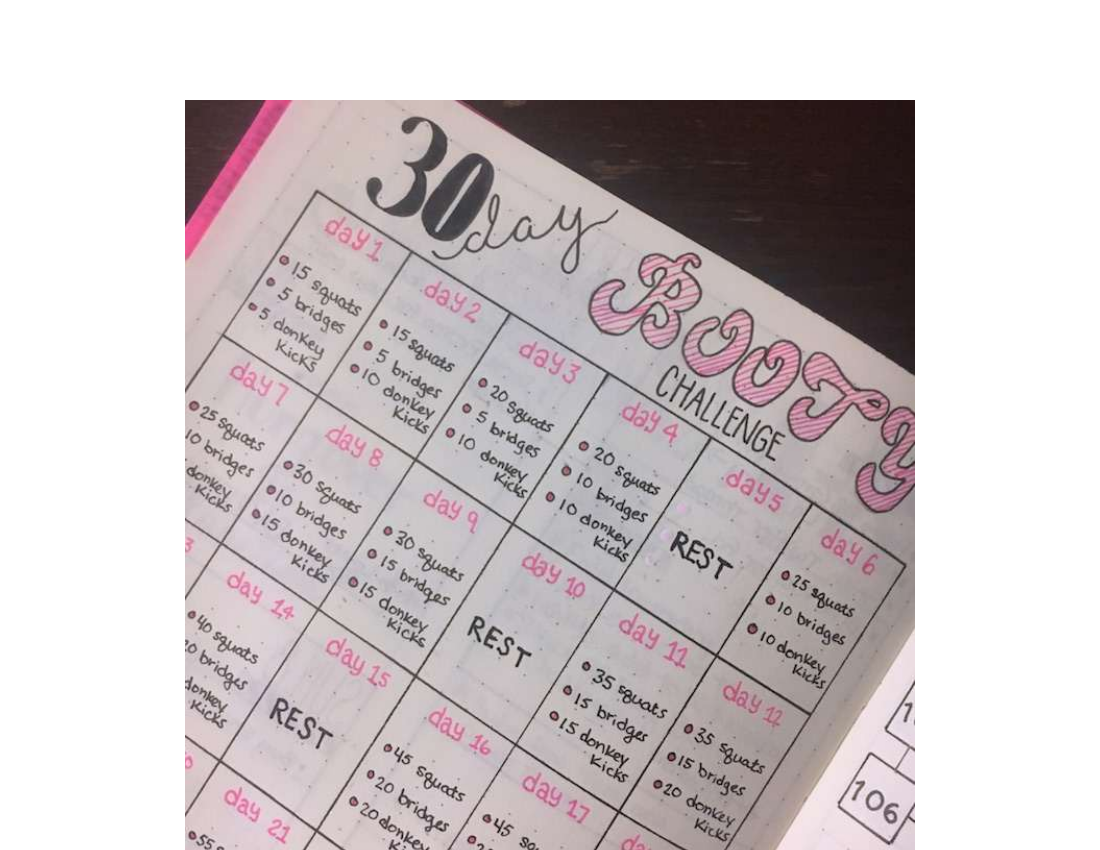 30 day
BOOTY
CHALLENGE
day 1
15 squats
5 bridges
5 donkey
Kicks
day 2
15 squats
5 bridges
10 donkey
Kicks
day 3
20 squats
5 bridges
10 donkey
Kicks
day 4
20 squats
10 bridges
10 donkey
Kicks
day 5
REST
day 6
25 squats
10 bridges
10 donkey
Kicks
day 7
25 squats
10 bridges
donkey
Kicks
day 8
30 squats
10 bridges
15 donkey
Kicks
day 9
30 squats
15 bridges
15 donkey
Kicks
day 10
REST
day 11
35 squats
15 bridges
15 donkey
Kicks
day 12
35 squats
15 bridges
20 donkey
Kicks
3
day 14
40 squats
0 bridges
donkey
Kicks
day 15
REST
day 16
45 squats
20 bridges
20 donkey
day 17
45
day 21
55
106